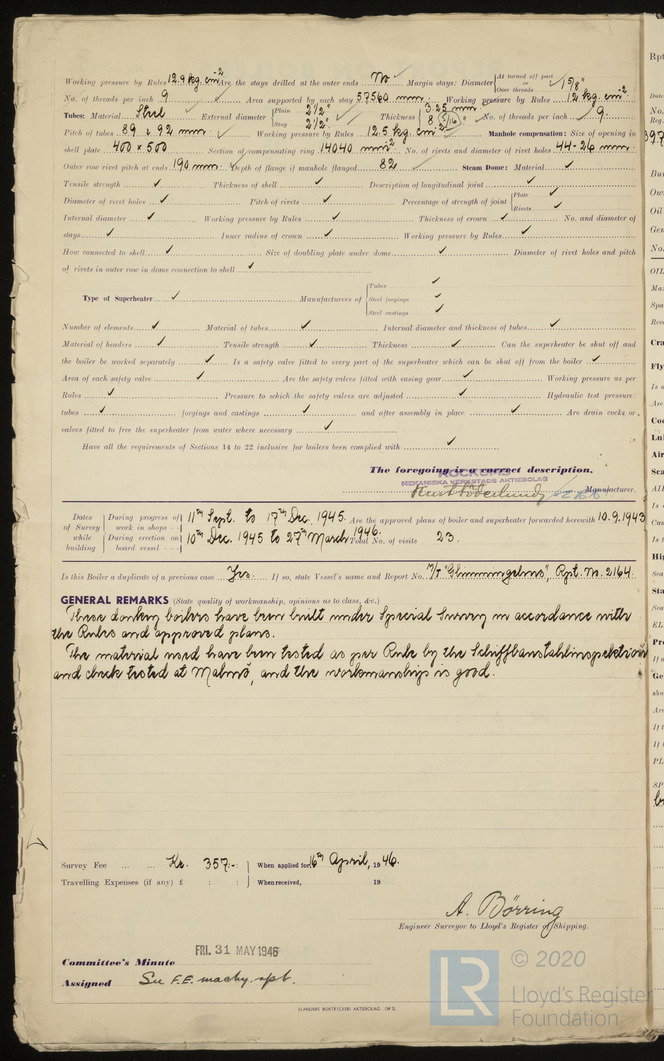 Working pressure by Rules 12.9 kg. cm² Are the stays drilled at the outer ends No Margin stays: Diameter { At turned off part or Over threads 1 5/8"
No. of threads per inch 9 Area supported by each stay 57560 mm² Working pressure by Rules 12 kg. cm²
Tubes: Material Steel External diameter { Plain 2½" Stay 2½" Thickness { 3.25 mm 8 (5/16") No. of threads per inch 9
Pitch of tubes 89 & 92 mm Working pressure by Rules 12.5 kg. cm² Manhole compensation: Size of opening in
shell plate 400 × 500 Section of compensating ring 14040 mm² No. of rivets and diameter of rivet holes 44-26 mm
Outer row rivet pitch at ends 190 mm Depth of flange if manhole flanged 82 Steam Dome: Material ✓
Tensile strength ✓ Thickness of shell ✓ Description of longitudinal joint ✓
Diameter of rivet holes ✓ Pitch of rivets ✓ Percentage of strength of joint { Plate ✓ Rivets ✓
Internal diameter ✓ Working pressure by Rules ✓ Thickness of crown ✓ No. and diameter of
stays ✓ Inner radius of crown ✓ Working pressure by Rules ✓
How connected to shell ✓ Size of doubling plate under dome ✓ Diameter of rivet holes and pitch
of rivets in outer row in dome connection to shell ✓
Type of Superheater ✓ Manufacturers of { Tubes ✓ Steel forgings ✓ Steel castings ✓
Number of elements ✓ Material of tubes ✓ Internal diameter and thickness of tubes ✓
Material of headers ✓ Tensile strength ✓ Thickness ✓ Can the superheater be shut off and
the boiler be worked separately ✓ Is a safety valve fitted to every part of the superheater which can be shut off from the boiler ✓
Area of each safety valve ✓ Are the safety valves fitted with easing gear ✓ Working pressure as per
Rules ✓ Pressure to which the safety valves are adjusted ✓ Hydraulic test pressure:
tubes ✓ forgings and castings ✓ and after assembly in place ✓ Are drain cocks or
valves fitted to free the superheater from water where necessary ✓
Have all the requirements of Sections 14 to 22 inclusive for boilers been complied with ✓
The foregoing is a correct description,
KOCKUMS
MEKANISKA VERKSTADS AKTIEBOLAG
Manufacturer.
Dates of Survey while building { During progress of work in shops - - 11th Sept. to 17th Dec. 1945. Are the approved plans of boiler and superheater forwarded herewith 10.9.1943
During erection on board vessel - - - 10th Dec. 1945 to 27th March 1946. Total No. of visits 23.
Is this Boiler a duplicate of a previous case Yes. If so, state Vessel's name and Report No. M/T "Glimmingehus", Rpt. No. 2164.
GENERAL REMARKS (State quality of workmanship, opinions as to class, &c.)
These donkey boilers have been built under Special Survey in accordance with
the Rules and approved plans.
The material used have been tested as per Rule by the Schiffbaustahlinspektion
and check tested at Malmö, and the workmanship is good.
Survey Fee ... ... Kr. 357:- When applied for, 16th April, 1946.
Travelling Expenses (if any) £ : : When received, 19
A. Börring
Engineer Surveyor to Lloyd's Register of Shipping.
FRI. 31 MAY 1946
Committee's Minute
Assigned See F.E. machy. rpt.
ELANDERS BOKTRYCKERI AKTIEBOLAG (W 3)
LR © 2020
Lloyd's Register
Foundation